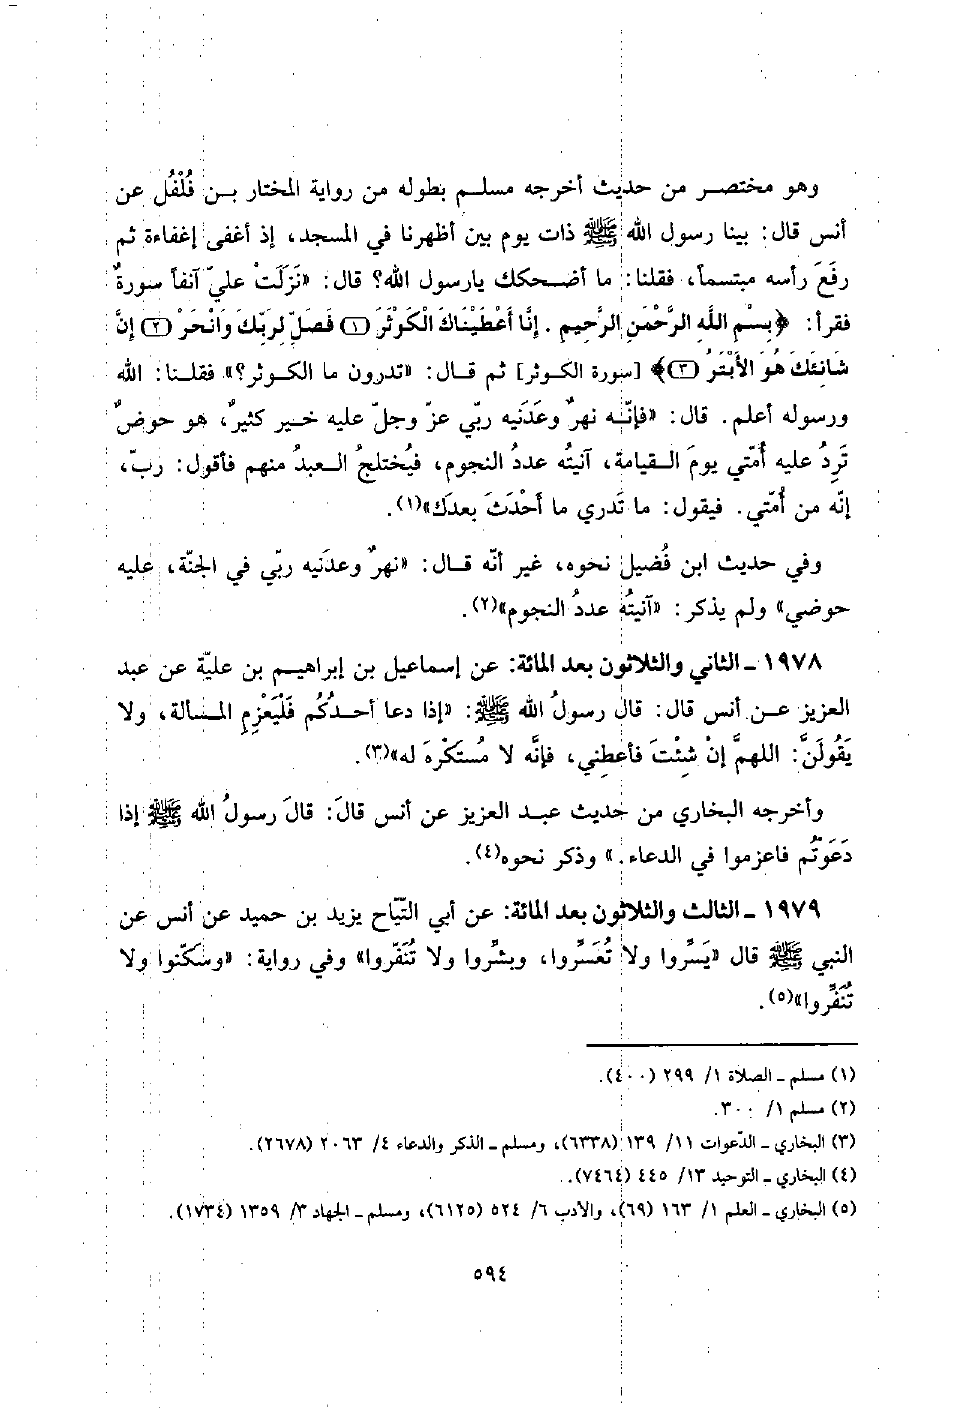 وهو مختصر من حديث أخرجه مسلم بطوله من رواية المختار بن فُلْفُل عن
أنس قال: بينا رسول الله ﷺ ذات يوم بين أظهرنا في المسجد، إذ أغفى إغفاءة ثم
رفَعَ رأسه مبتسماً، فقلنا: ما أضحكك يارسول الله؟ قال: «نَزَلَتْ عليّ آنفاً سورةٌ
فقرأ: ﴿بِسْمِ اللَّهِ الرَّحْمَنِ الرَّحِيمِ . إِنَّا أَعْطَيْنَاكَ الْكَوْثَرَ (١) فَصَلِّ لِرَبِّكَ وَانْحَرْ (٢) إِنَّ
شَانِئَكَ هُوَ الأَبْتَرُ (٣)﴾ [سورة الكوثر] ثم قال: «تدرون ما الكوثر؟» فقلنا: الله
ورسوله أعلم. قال: «فإنّه نهرٌ وعَدَنيه ربّي عزّ وجلّ عليه خير كثيرٌ، هو حوضٌ
تَرِدُ عليه أُمّتي يومَ القيامة، آنيتُه عددُ النجوم، فيُختلجُ العبدُ منهم فأقول: ربّ،
إنّه من أُمّتي. فيقول: ما تَدري ما أَحْدَثَ بعدَك»(١).
وفي حديث ابن فُضيل نحوه، غير أنّه قال: «نهرٌ وعدَنيه ربّي في الجنّة، عليه
حوضي» ولم يذكر: «آنيتُه عددُ النجوم»(٢).
١٩٧٨ ـ الثاني والثلاثون بعد المائة: عن إسماعيل بن إبراهيم بن عليّة عن عبد
العزيز عن أنس قال: قال رسولُ الله ﷺ: «إذا دعا أحدُكُم فَلْيَعْزِمِ المسألة، ولا
يَقُولَنَّ: اللهمَّ إنْ شِئْتَ فأعطِني، فإنَّه لا مُستَكْرِهَ له»(٣).
وأخرجه البخاري من حديث عبد العزيز عن أنس قالَ: قالَ رسولُ الله ﷺ إذا
دَعَوتُم فاعزموا في الدعاء.» وذكر نحوه(٤).
١٩٧٩ ـ الثالث والثلاثون بعد المائة: عن أبي التّيّاح يزيد بن حميد عن أنس عن
النبي ﷺ قال «يَسِّروا ولا تُعَسِّروا، وبشِّروا ولا تُنَفّروا» وفي رواية: «وسكّنوا ولا
تُنَفِّروا»(٥).
(١) مسلم ـ الصلاة ١/ ٢٩٩ (٤٠٠).
(٢) مسلم ١/ ٣٠٠.
(٣) البخاري ـ الدّعوات ١١/ ١٣٩ (٦٣٣٨)، ومسلم ـ الذكر والدعاء ٤/ ٢٠٦٣ (٢٦٧٨).
(٤) البخاري ـ التوحيد ١٣/ ٤٤٥ (٧٤٦٤).
(٥) البخاري ـ العلم ١/ ١٦٣ (٦٩)، والأدب ٦/ ٥٢٤ (٦١٢٥)، ومسلم ـ الجهاد ٣/ ١٣٥٩ (١٧٣٤).
٥٩٤